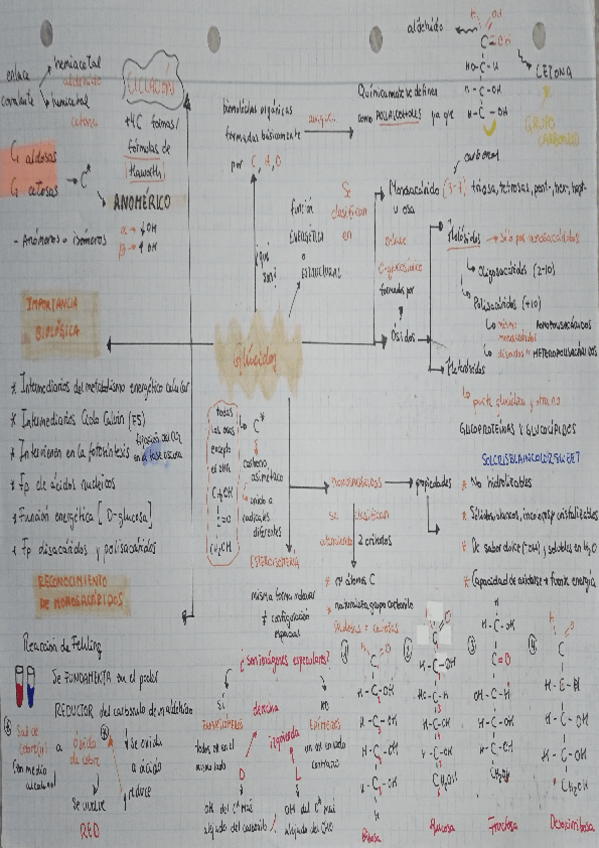 enlace covalente
hemiacetal
aldehído
hemicetal
cetona
CICLACIÓN
+4C formas/
fórmulas de
Haworth
C1 aldosas
C2 cetosas → C*
ANOMÉRICO
- Anómeros = isómeros
α → ↓ OH
β → ↑ OH
biomoléculas orgánicas
formadas básicamente
por C, H, O
¿qué son?
Químicamente se definen
como POLIALCOHOLES ya que
aldehído
CETONA
GRUPO
CARBONILO
función
ENERGÉTICA
o
ESTRUCTURAL
Se
clasifican
en
Monosacárido (3-7) triosa, tetrosas, pent-, hex-, hept-
u osa
enlace
O-glucosídico
formados por
Ósidos
Holósidos → Sólo por monosacáridos
Oligosacáridos (2-10)
Polisacáridos (+10)
mismo monosacárido HOMOPOLISACÁRIDOS
distintos = HETEROPOLISACÁRIDOS
Heterósidos
parte glucídica y otra no
GLUCOPROTEÍNAS Y GLUCOLÍPIDOS
Glúcidos
IMPORTANCIA
BIOLÓGICA
* Intermediarios del metabolismo energético celular
* Intermediarios Ciclo Calvin (FS)
* Intervienen en la fotosíntesis fijación del CO2 en la fase oscura
* Fp de ácidos nucleicos
* Función energética [D-glucosa]
* Fp disacáridos y polisacáridos
todas
las osas
excepto
el DHA
CH2OH
C=O
CH2OH
C*
carbono
asimétrico
unido a
radicales
diferentes
ESTEREOISOMERÍA
misma forma molecular
≠ configuración
espacial
monosacáridos
se clasifican
atendiendo 2 criterios
* nº átomos C
* naturaleza grupo carbonilo
aldosas o cetosas
propiedades
* No hidrolizables
* Sólidos, blancos, incoloros y cristalizables
* De sabor dulce (-OH) y solubles en H2O
* Capacidad de oxidarse → fuente energía
RECONOCIMIENTO
DE MONOSACÁRIDOS
Reacción de Fehling
Se FUNDAMENTA en el poder
REDUCTOR del carbonilo de un aldehído
Sal de cobre
a
óxido de cobre
se oxida
a ácido
reduce
se vuelve
RED
¿Son imágenes especulares?
Sí
NO
ENANTIÓMEROS
EPÍMEROS
derecha
izquierda
D
L
OH del C* más
alejado del carbonilo
OH del C* más
alejado del CHO
Ribosa
Glucosa
Fructosa
Desoxirribosa